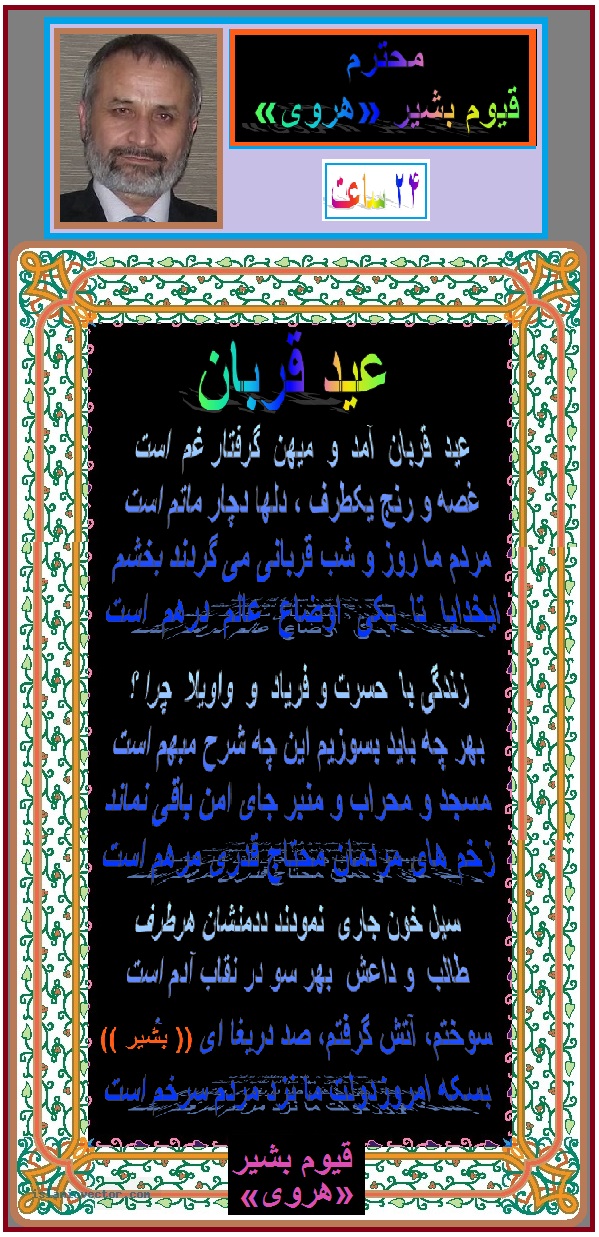 محترم
قیوم بشیر «هروی»
۲۴ ساعت
عید قربان
عید قربان آمد و میهن گرفتار غم است
غصه و رنج یکطرف ، دلها دچار ماتم است
مردم ما روز و شب قربانی می گردند بخشم
ایخدایا تا بکی اوضاع عالم درهم است
زندگی با حسرت و فریاد و واویلا چرا ؟
بهر چه باید بسوزیم این چه شرح مبهم است
مسجد و محراب و منبر جای امن باقی نماند
زخم های مردمان محتاج قدری مرهم است
سیل خون جاری نمودند ددمنشان هرطرف
طالب و داعش بهر سو در نقاب آدم است
سوختم، آتش گرفتم، صد دریغا ای (( بشیر ))
بسکه امروز دولت ما نزد مردم سرخم است
قیوم بشیر
«هروی»